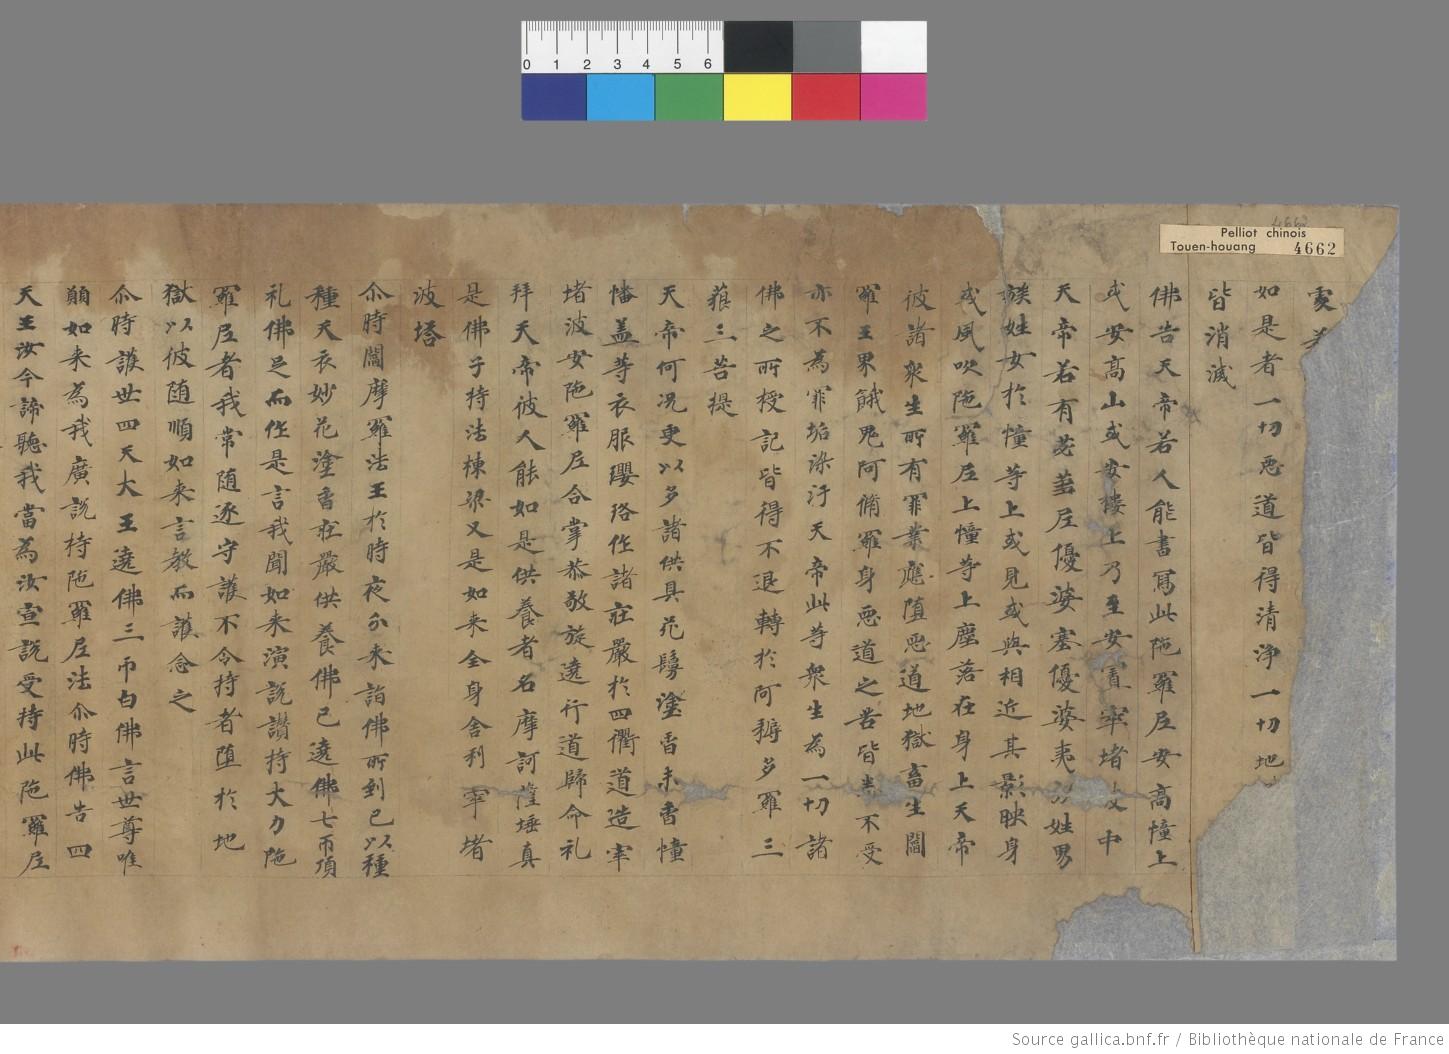 Pelliot chinois
Touen-houang 4662
0 1 2 3 4 5 6
如是者一切惡道皆得清淨一切地
皆消滅
佛告天帝若人能書寫此陁羅尼安高幢上
或安高山或安樓上乃至安置窣堵波中
天帝若有苾蒭尼優婆塞優婆夷族姓男
族姓女於幢等上或見或與相近其影映身
或風吹陁羅尼上幢等上塵落在身上天帝
彼諸衆生所有罪業應墮惡道地獄畜生閻
羅王界餓鬼阿脩羅身惡道之苦皆悉不受
亦不為罪垢染汙天帝此等衆生為一切諸
佛之所授記皆得不退轉於阿耨多羅三
藐三菩提
天帝何况更以多諸供具花鬘塗香末香幢
幡盖等衣服瓔珞作諸莊嚴於四衢道造窣
堵波安陁羅尼合掌恭敬旋遶行道歸命礼
拜天帝彼人能如是供養者名摩訶薩埵真
是佛子持法棟梁又是如来全身舍利窣堵
波塔
尒時閻摩羅法王於時夜分来詣佛所到已以種
種天衣妙花塗香莊嚴供養佛已遶佛七帀頂
礼佛足而作是言我聞如来演說讚持大力陁
羅尼者我常随逐守護不令持者墮於地
獄以彼随順如来言教而護念之
尒時護世四天大王遶佛三帀白佛言世尊唯
願如来為我廣說持陁羅尼法尒時佛告四
天王汝今諦聽我當為汝宣說受持此陁羅尼
Source gallica.bnf.fr / Bibliothèque nationale de France